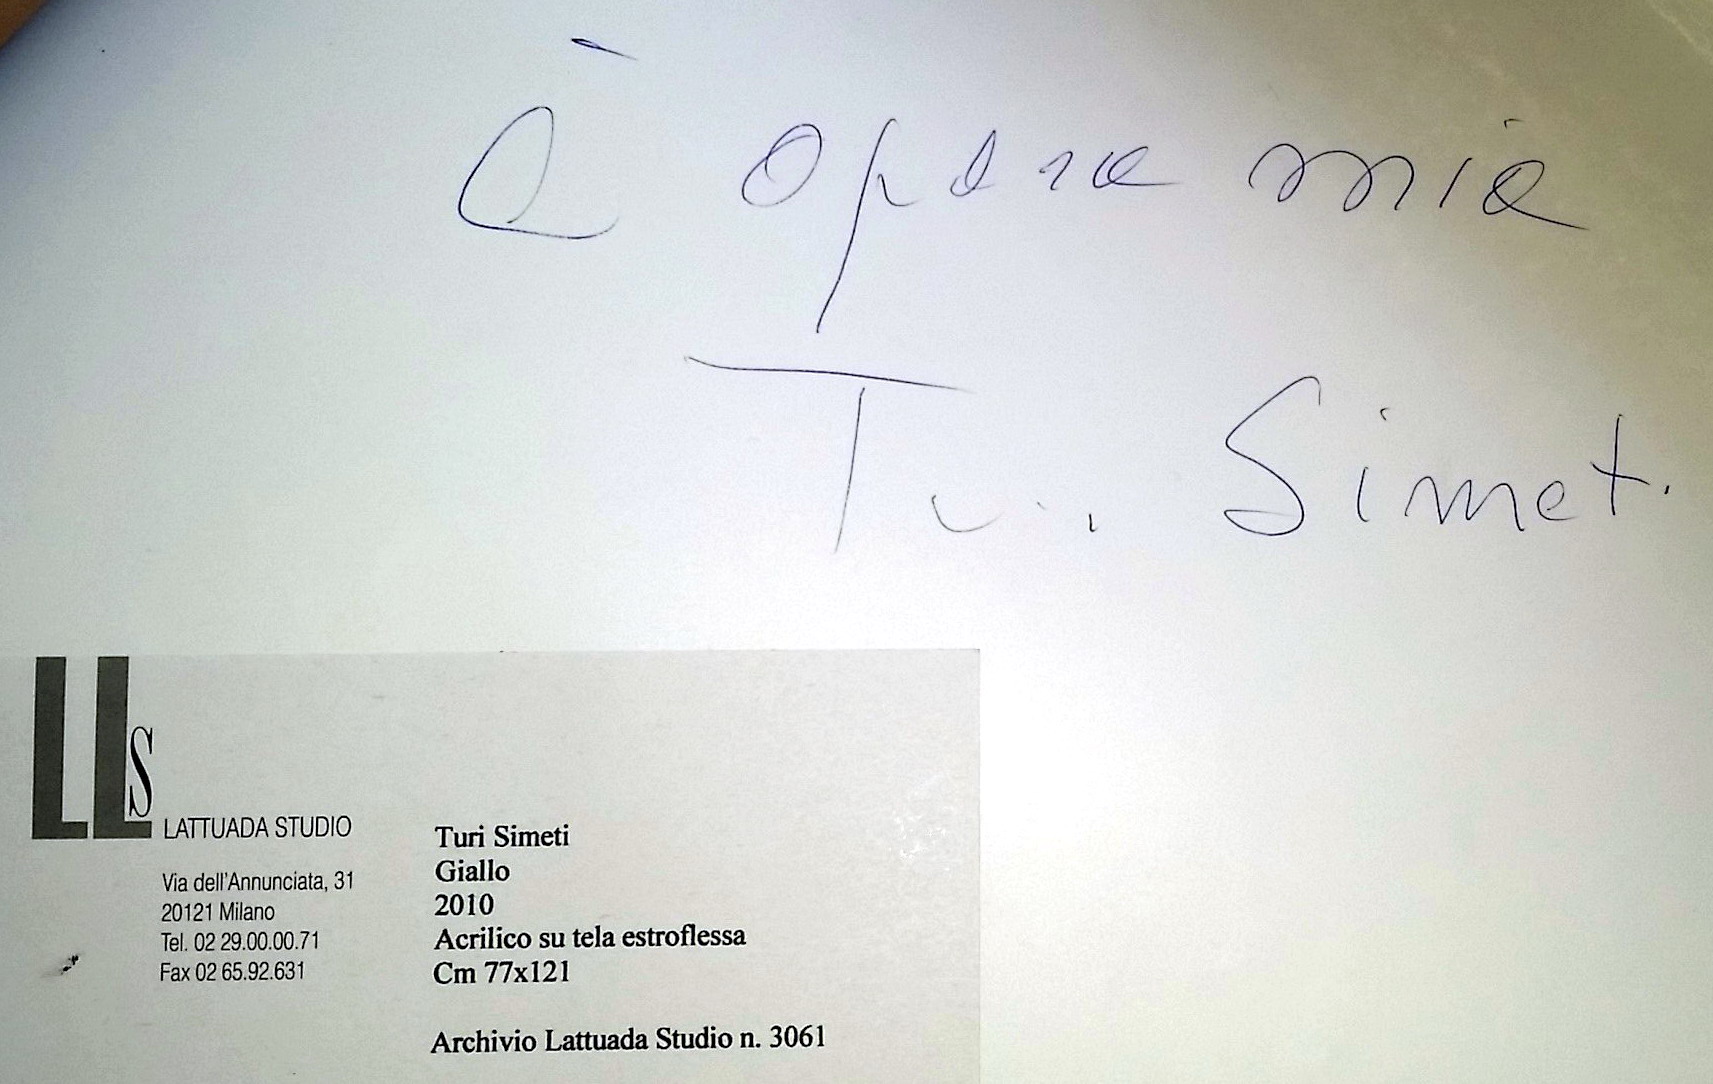 È opera mia
Turi Simeti
LLS
LATTUADA STUDIO
Via dell'Annunciata, 31
20121 Milano
Tel. 02 29.00.00.71
Fax 02 65.92.631
Turi Simeti
Giallo
2010
Acrilico su tela estroflessa
Cm 77x121
Archivio Lattuada Studio n. 3061